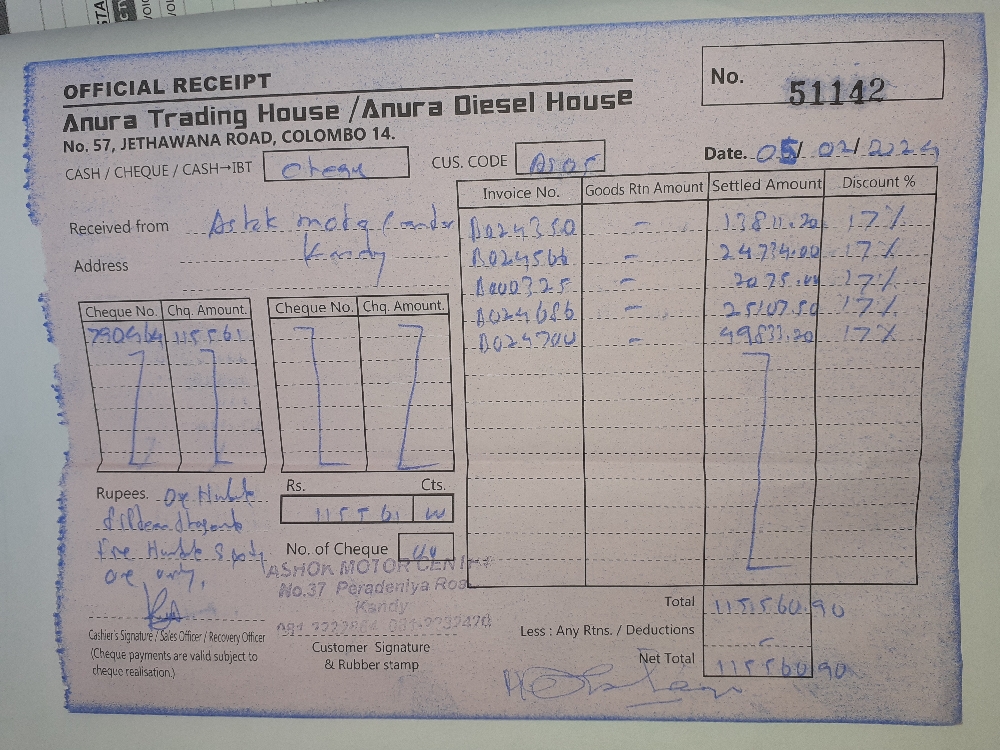 OFFICIAL RECEIPT
No. 51142
Anura Trading House / Anura Diesel House
No. 57, JETHAWANA ROAD, COLOMBO 14.
CASH / CHEQUE / CASH→IBT Cheque
CUS. CODE
Date. 05/ 02/ 2024
Received from Ashok motor
Address Kandy
Invoice No. Goods Rtn Amount Settled Amount Discount %
B024350 - 13811.20 17%
B024566 - 24734.00 17%
- 2075.00 17%
B024686 - 25107.50 17%
B024700 - 49833.20 17%
Cheque No. Chq. Amount. Cheque No. Chq. Amount.
790464 115561
Rupees. One Hundred
fifteen thousand
Five Hundred Sixty
one only,
Rs. Cts.
115561 00
No. of Cheque
ASHOK MOTOR CENTRE
No.37 Peradeniya Road
Kandy
Cashier's Signature / Sales Officer / Recovery Officer
(Cheque payments are valid subject to
cheque realisation.)
Customer Signature
& Rubber stamp
Total 115560.90
Less : Any Rtns. / Deductions -
Net Total 115560.90